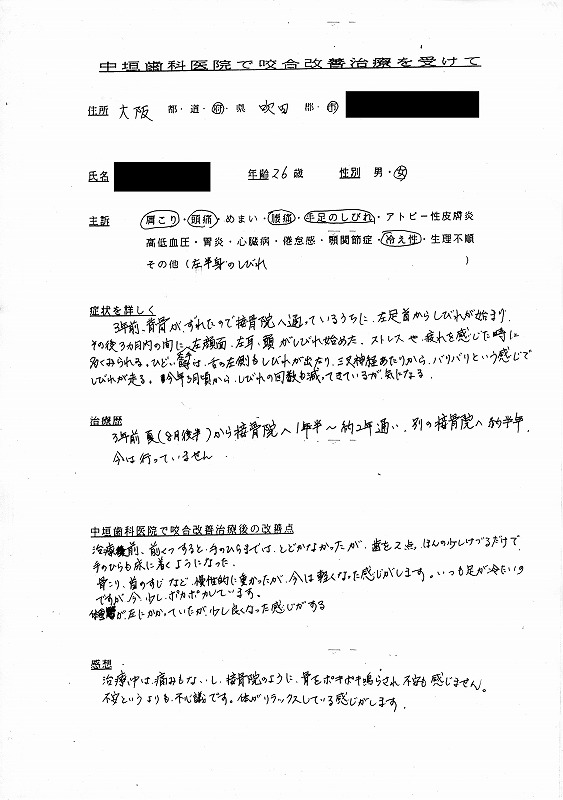 中垣歯科医院で咬合改善治療を受けて
住所 大阪 都・道・府・県 吹田 郡・市
氏名 年齢 26 歳 性別 男・女
主訴 肩こり・頭痛・めまい・腰痛・手足のしびれ・アトピー性皮膚炎
高低血圧・胃炎・心臓病・倦怠感・顎関節症・冷え性・生理不順
その他(左半身のしびれ )
症状を詳しく
3年前、背骨が、ずれたので接骨院へ通っているうちに、左足首からしびれが始まり、
その後3カ月内の間に、左顔面、左耳、頭がしびれ始めた。ストレスや、疲れを感じた時に
多くみられる。ひどい時は、舌の左側もしびれが出たり、三叉神経あたりから、バリバリという感じで
しびれが走る。今年3月頃から、しびれの回数も減ってきているが、気になる。
治療歴
3年前 夏(8月後半)から接骨院へ1年半～約2年通い、別の接骨院へ約半年、
今は行っていません
中垣歯科医院で咬合改善治療後の改善点
治療前、前くつすると、手のひらまでは、とどかなかったが、歯を2点、ほんの少しけづるだけで、
手のひらも床に着くようになった。
肩こり、首のすじなど、慢性的に重かったが、今は軽くなった感じがします。いつも足が冷たいの
ですが、今、少し、ポカポカしています。
が左にかかっていたが、少し良くなった感じがする
感想
治療中は、痛みもないし、接骨院のように、骨をポキポキ鳴らされ不安も感じません。
不安というよりも、不思議です。体がリラックスしている感じがします.